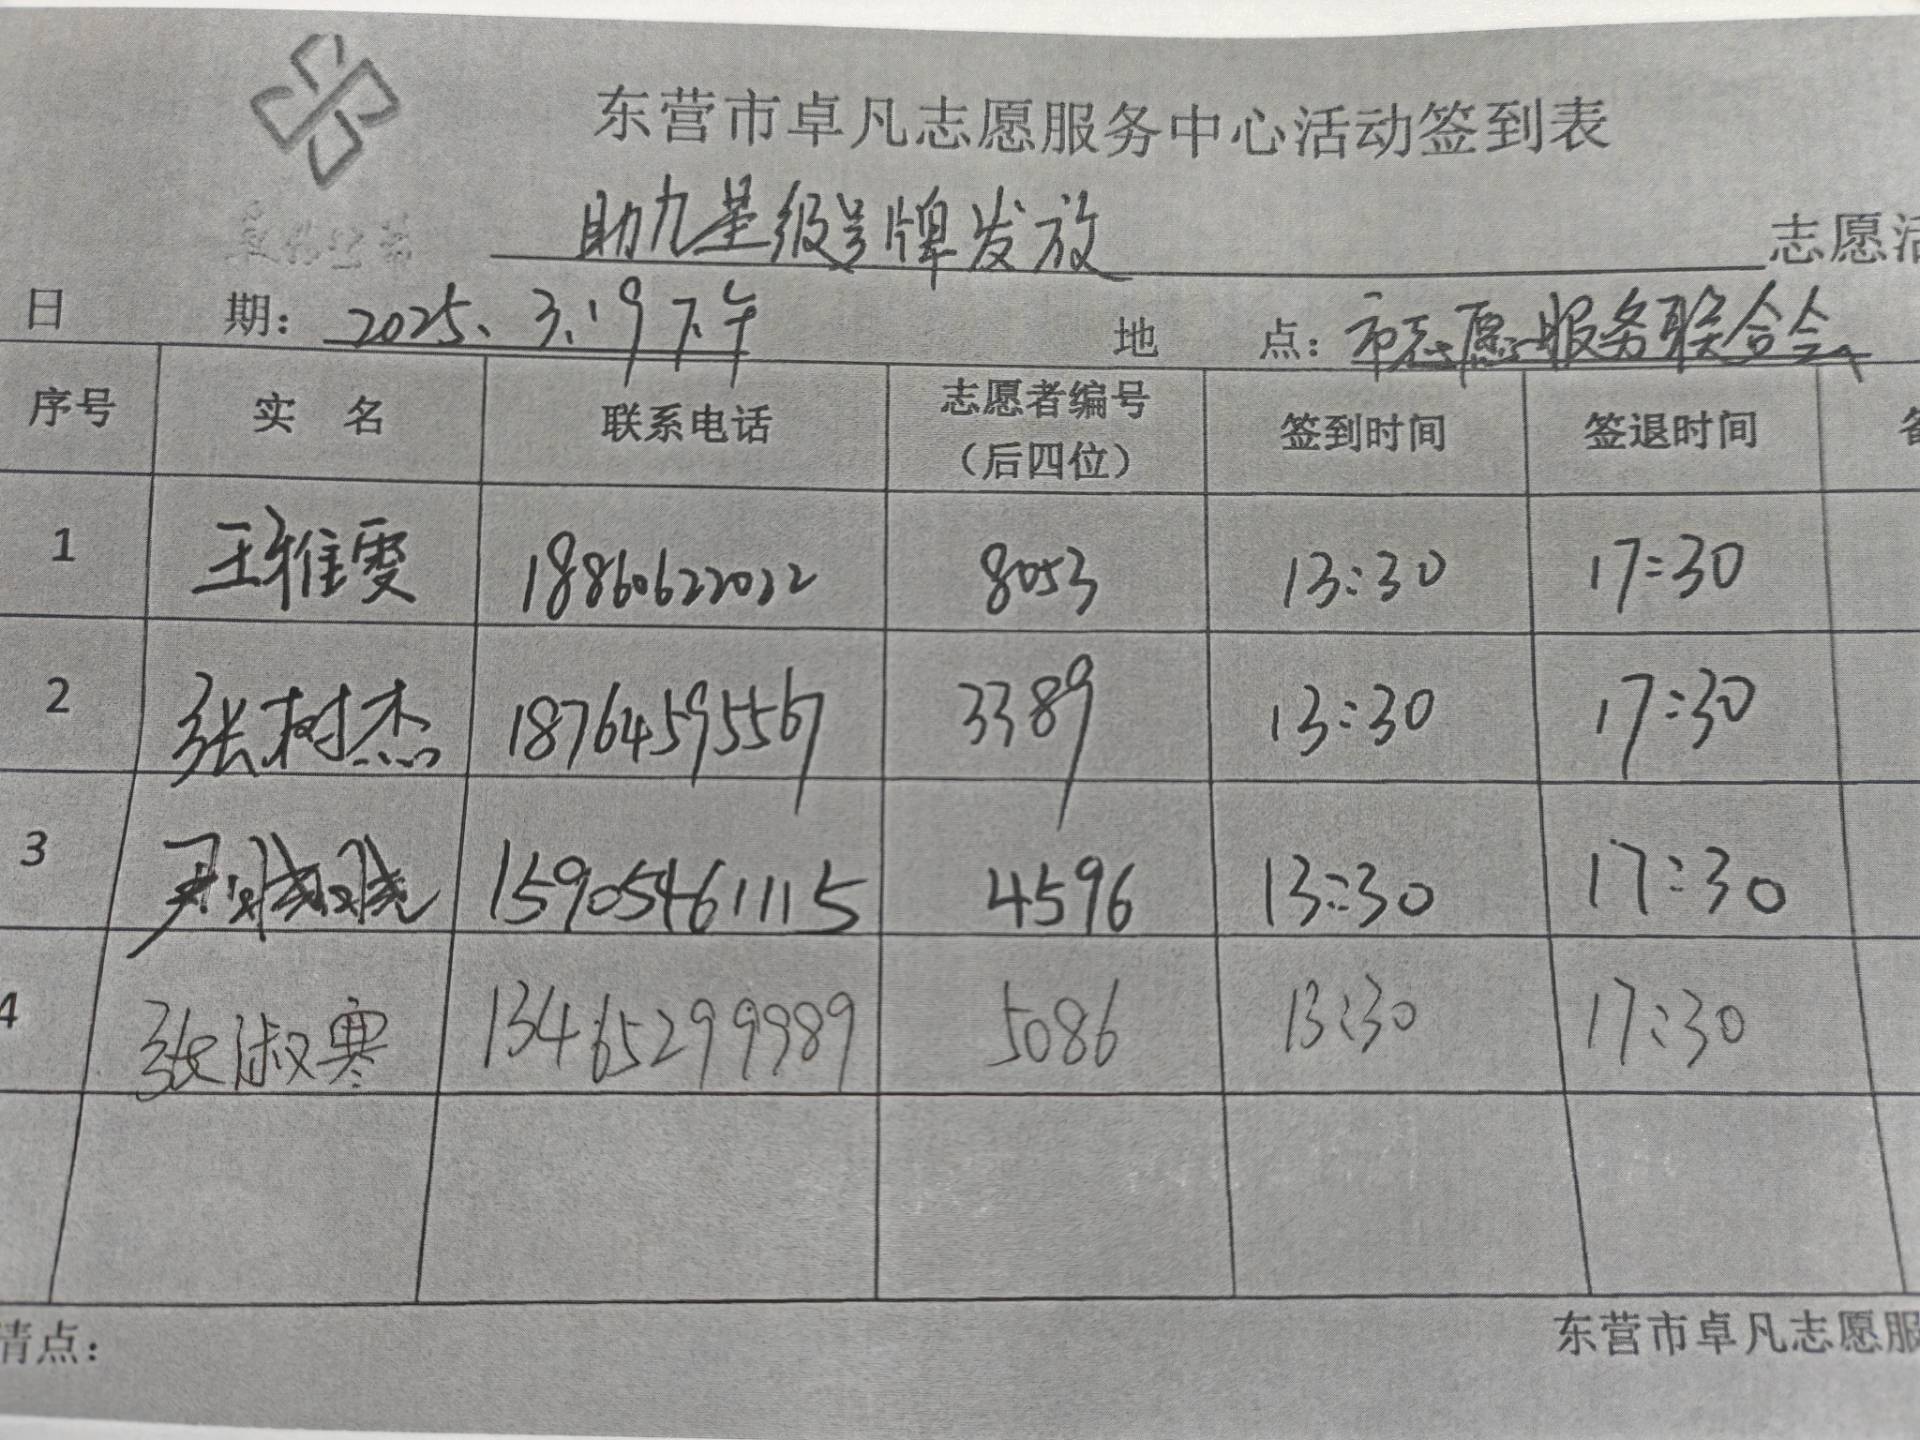 东营市卓凡志愿服务中心活动签到表
助力星级号牌发放 志愿活
日 期: 2025.3.19下午 地 点: 市志愿服务联合会
序号 实 名 联系电话 志愿者编号（后四位） 签到时间 签退时间
1 王雅雯 18860622022 8053 13:30 17:30
2 张树杰 18764595567 3389 13:30 17:30
3 15905461115 4596 13:30 17:30
4 张淑寒 13465299989 5086 13:30 17:30
清点: 东营市卓凡志愿服